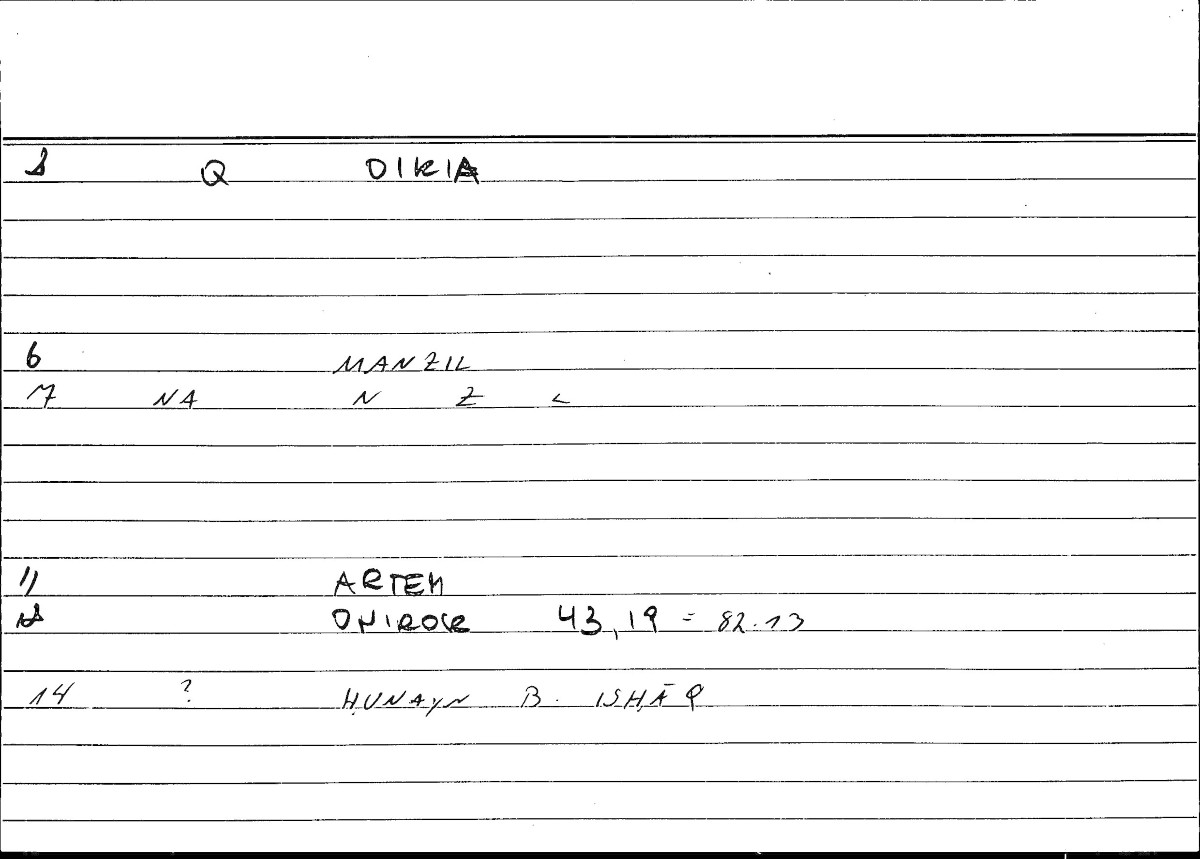 1 Q OIKIA
6 MANZIL
7 NA N Z L
11 ARTEM
12 ONIROCR 43,19 = 82.13
14 ? ḤUNAYN B. ISḤĀQ